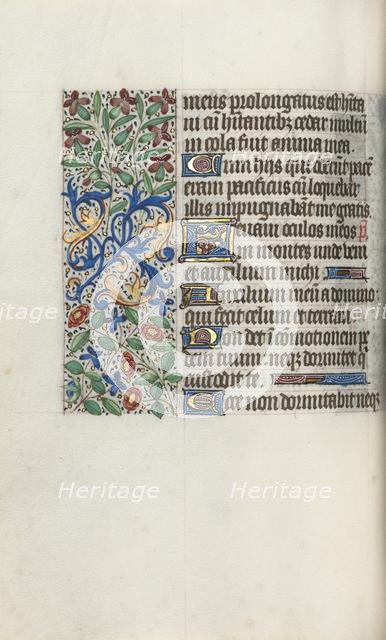 meus prolongatus est habita
ui cū habitantibꝫ cedar multū
in cola fuit anima mea.
Cum hijs qui oderūt pacē
eram pacificus cū loquebar
illis impugnabāt me gratis.
Leuaui oculos meos
in montes unde veni
et auxilium michi
Auxilium meū a domino
qui fecit celum et terram
Non det ī comotionem pe
dem tuum neqꝫ dormitet q
custodit te.
Ecce non dormitabit neqꝫ
Heritage
Heritage
Heritage
Heritage
Heritage
Heritage